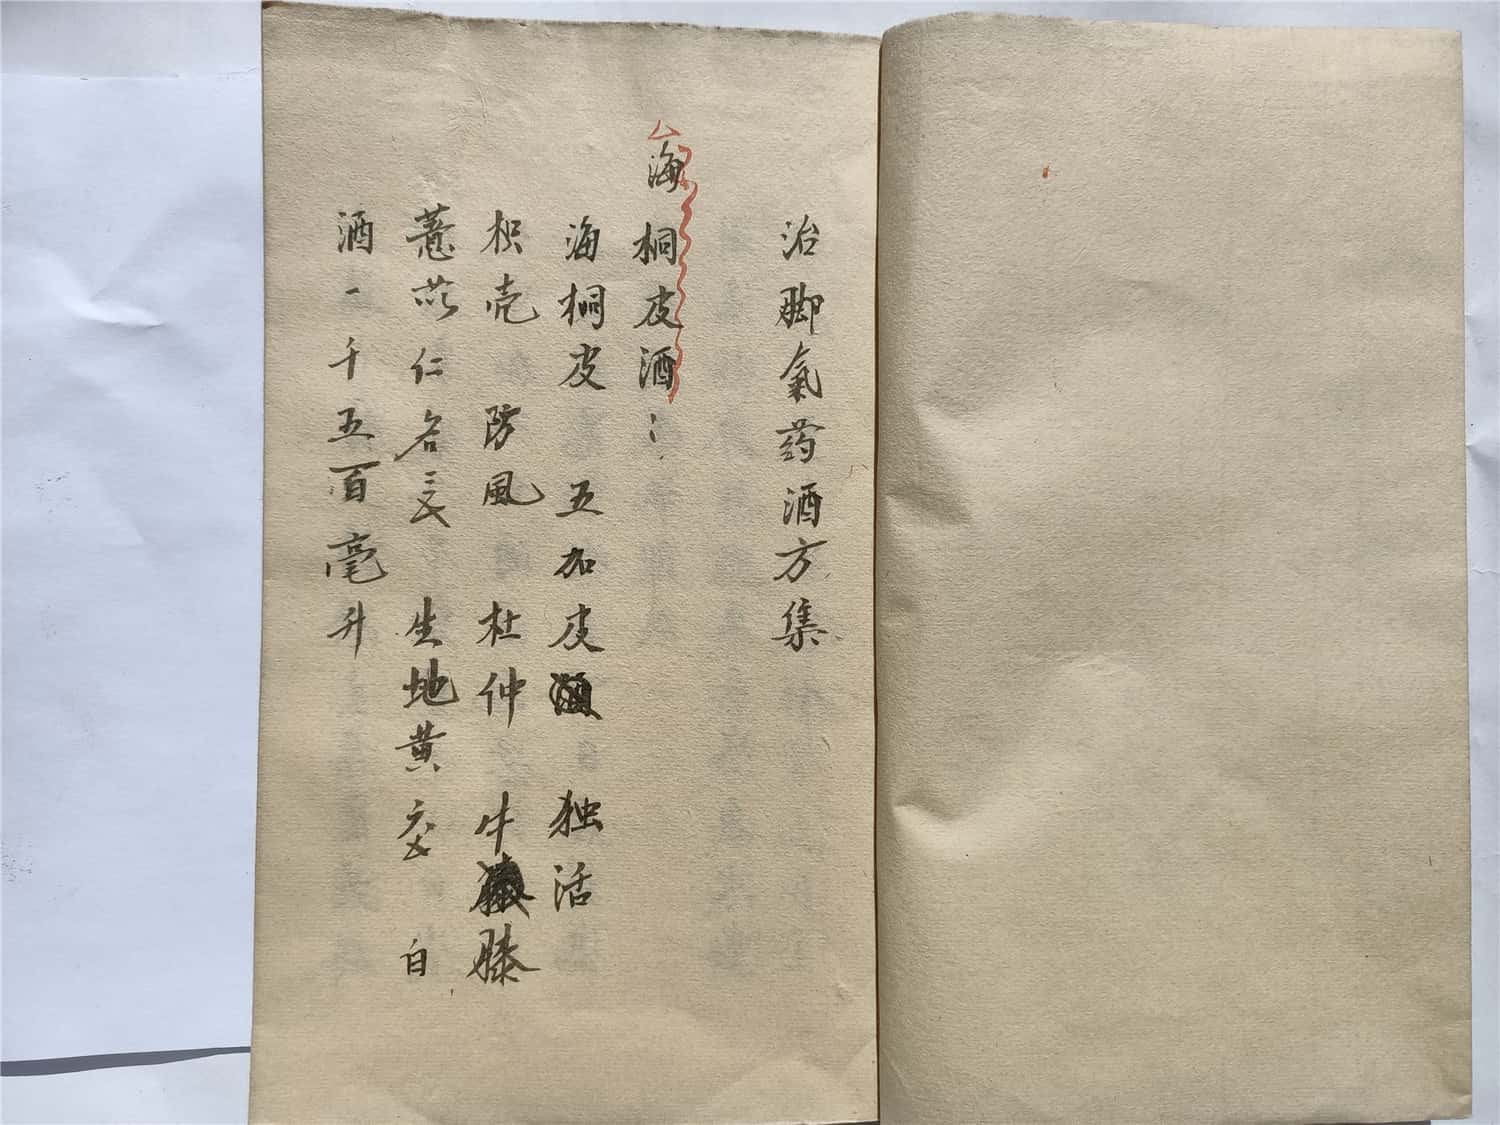 治脚氣药酒方集
海桐皮酒：
海桐皮 五加皮 独活
枳壳 防風 杜仲 牛膝
薏苡仁各三钱 生地黄六钱 白
酒一千五百毫升